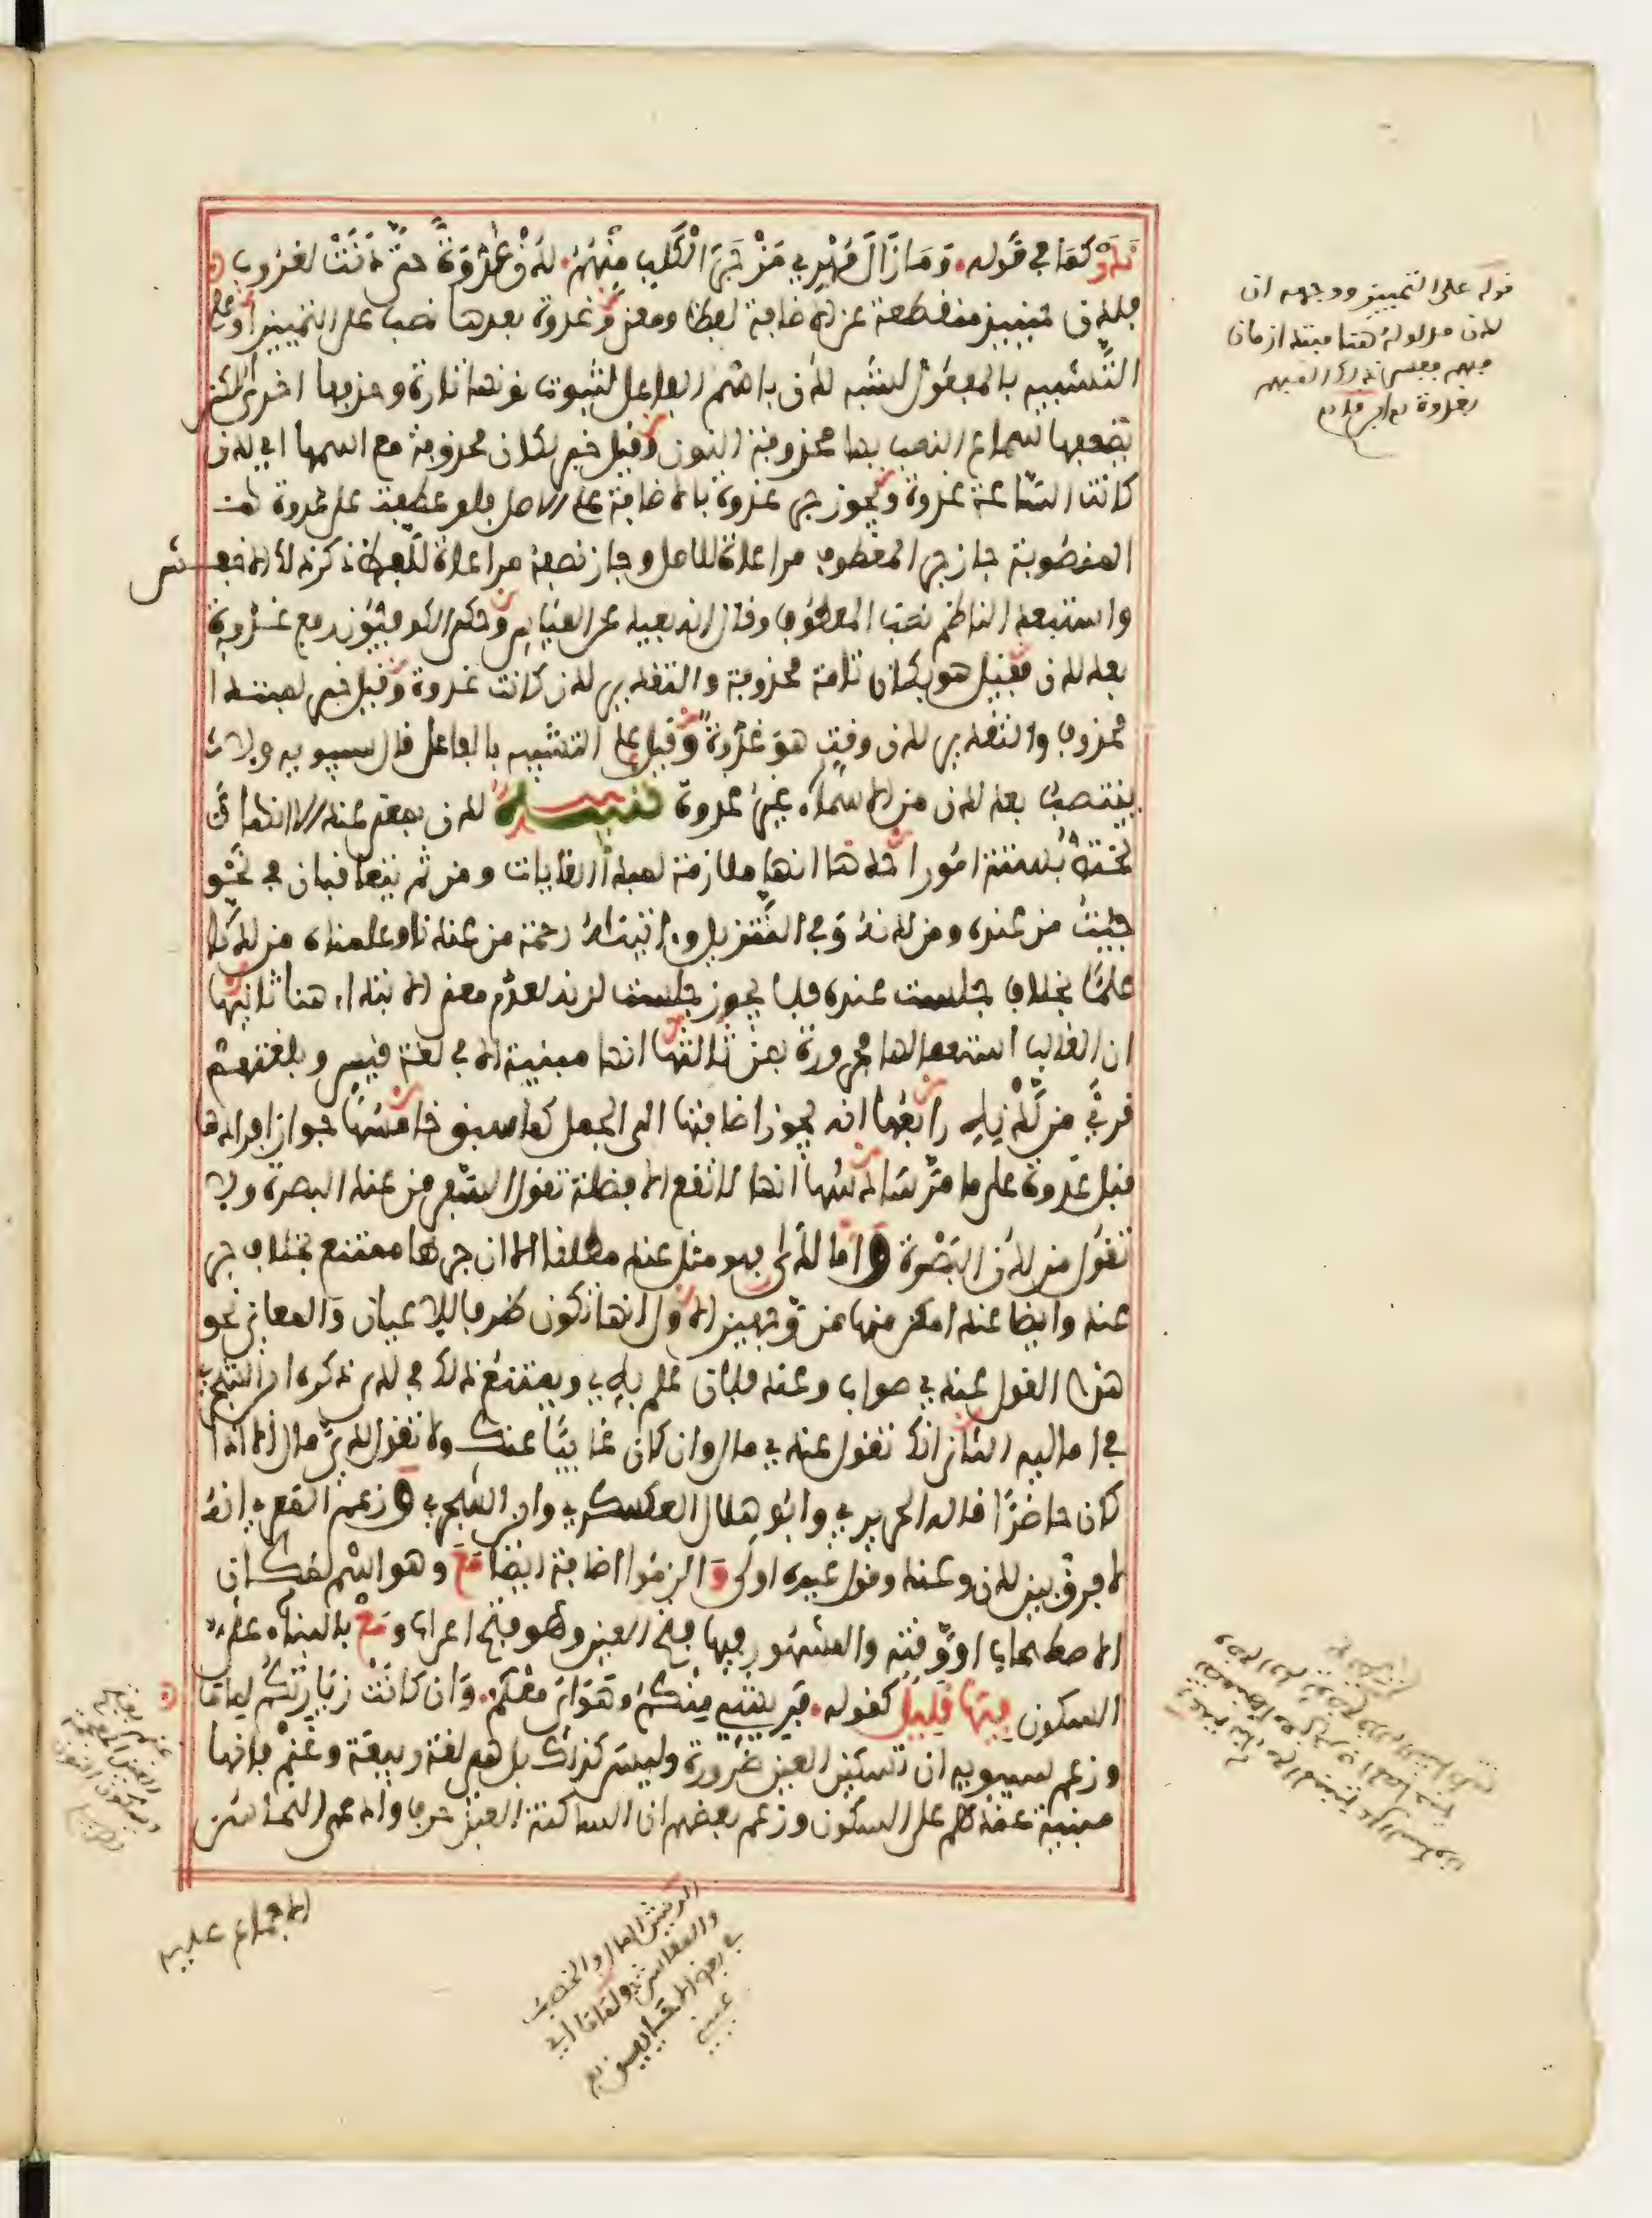 ندر كما في قوله وَمَا زَالَ مُهْرِي مَزْجَرَ الْكَلْبِ مِنْهُمُ لَدُنْ غُدْوَةً حَتَّى دَنَتْ لغروب
فلدن حينئذ منقطعة عن الاضافة لفظا ومعنى وغدوة بعدها نصب على التمييز او على
التشبيه بالمفعول لشبه لدن باسم الفاعل لثبوت نونها تارة وحذفها اخرى لكن
يضعفها سماع النصب بها محذوفة النون وقيل خبر لكان محذوفة مع اسمها اي لدن
كانت الساعة غدوة ويجوز جر غدوة بالاضافة على الاصل فلو عطفت على غدوة
المنصوبة جاز جر المعطوف مراعاة للاصل وجاز نصبه مراعاة للفظ ذكر ذلك الاخفش
واستبعد الناظم نصب المعطوف وقال انه بعيد عن القياس وحكى الكوفيون رفع غدوة
بعد لدن فقيل هو بكان تامة محذوفة والتقدير لدن كانت غدوة وقيل خبر لمبتدا
محذوف والتقدير لدن وقت هو غدوة وقيل على التشبيه بالفاعل قال سيبويه ولا
ينتصب بعد لدن من الاسماء غير غدوة تنبيه لدن بمعنى عند الا انها
تختص بستة امور احدها انها ملازمة لمبدا الغايات ومن ثم يتعاقبان في نحو
جئت من عنده ومن لدنه وفي التنزيل وءاتيناه رحمة من عندنا وعلمناه من لدنا
علما بخلاف جلست عنده فلا يجوز جلست لدنه لعدم معنى الابتداء هنا ثانيها
ان الغالب استعمالها مجرورة بمن ثالثها انها مبنية الا في لغة قيس وبلغتهم
قرئ من لَدْنِهِ رابعها انه يجوز اضافتها الى الجمل كما سبق خامسها جواز افرادها
قبل غدوة على ما مر سادسها انها لا تقع الا فضلة تقول السفر من عند البصرة ولا
تقول من لدن البصرة واما لدى فهو مثل عند مطلقا الا ان جرها ممتنع بخلاف جر
عند وايضا عند امكن منها من وجهين الاول انها تكون ظرفا للاعيان والمعاني نحو
هذا القول عندي صواب وعند فلان علم به ويمتنع ذلك في لدى ذكره ابن الشجري
في اماليه الثاني انك تقول عندي مال وان كان غائبا عنك ولا تقول لدي مال الا اذا
كان حاضرا قاله الحريري وابو هلال العسكري وابن الشجري وزعم المعري انه
لا فرق بين لدى وعند وقول غيره اولى وَالزموا اضافة ايضا مَعَ وهو اسم لمكان
الاصطحاب او وقته والمشهور فيها فتح العين وهو فتح اعراب ومَعْ بالبناء على
السكون فِيهَا قَلِيلٌ كقوله فريشي منكم وهواي معكم وَان كَانَتْ زِيَارَتُكُم لِمَامَا
وزعم سيبويه ان تسكين العين ضرورة وليس كذلك بل هي لغة ربيعة وغنم فانها
مبنية عندهم على السكون وزعم بعضهم ان الساكنة العين حرف وادعى النحاس
الاجماع عليه
قوله على التمييز ووجهه ان
لدن مدلوله هنا مبتدا زمان
مبهم ففسر ذلك المبهم
بغدوة
غنم بفتح
الغين المعجمة
وسكون النون
الريش المال والخصب
والمعاش